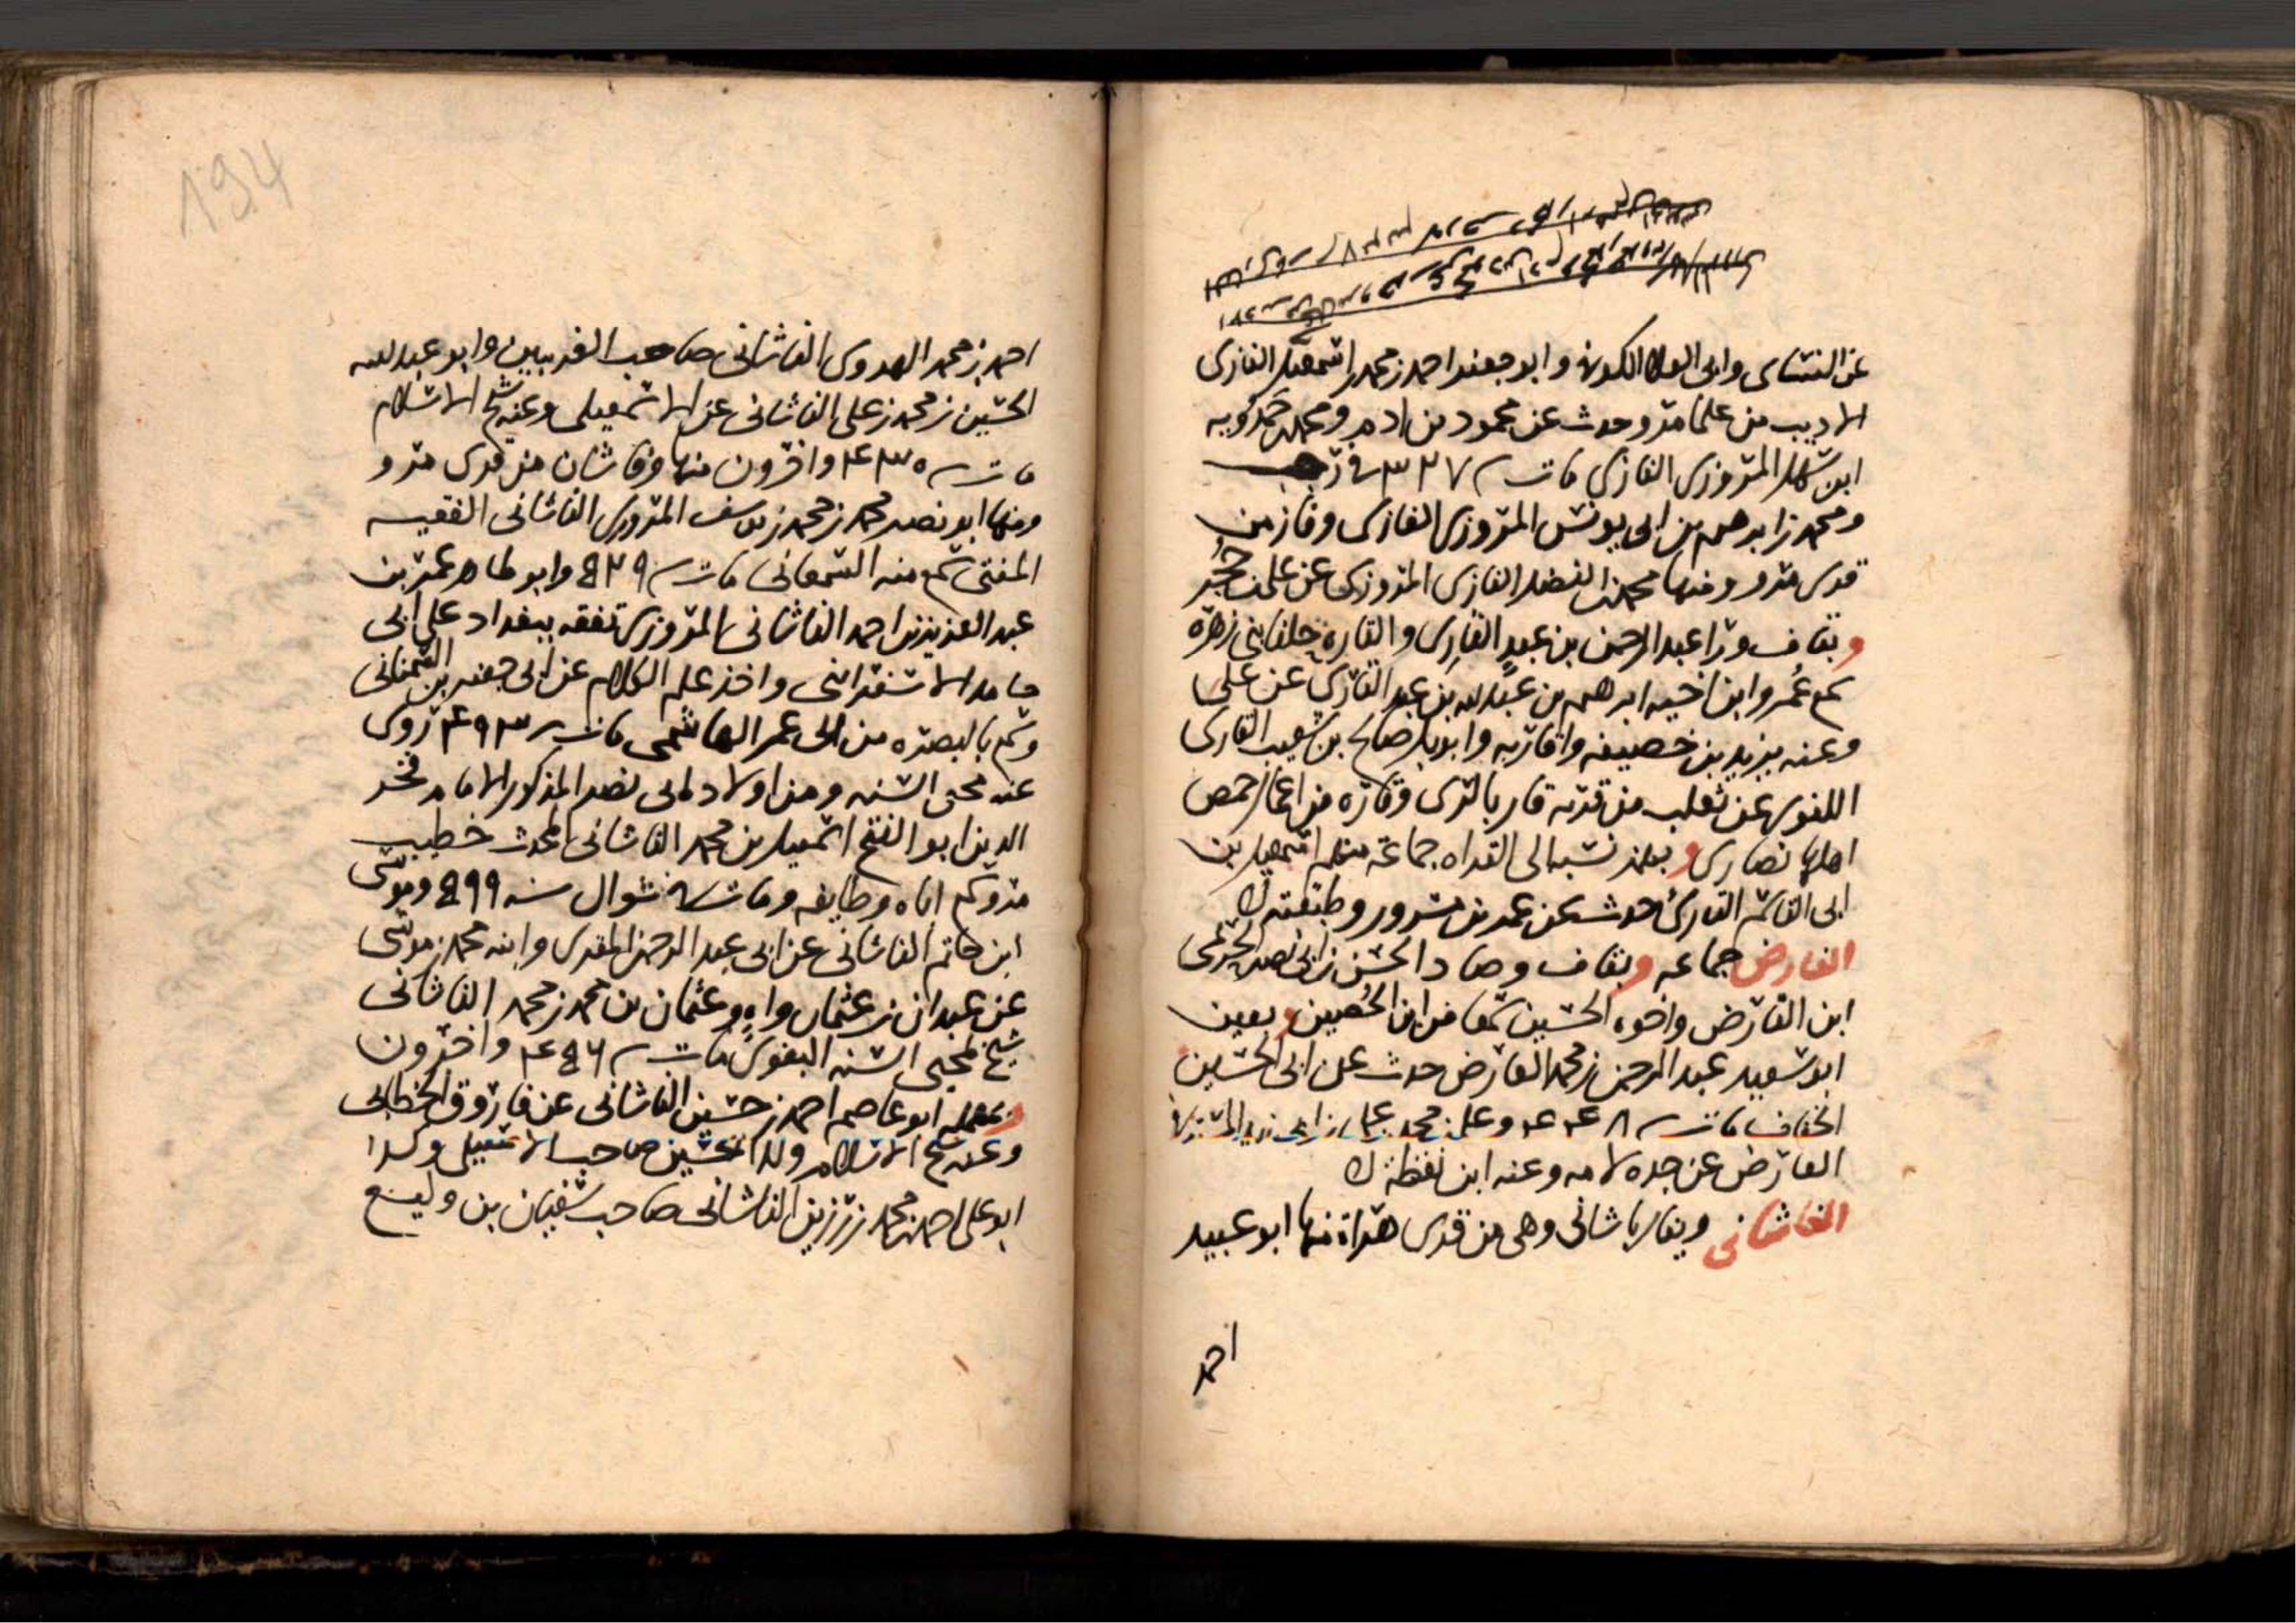 عن النسائى وابى العلاء الكوفى وابو جعفر احمد بن محمد بن اسمعيل الفازى
الاديب من علما مرو حدث عن محمود بن ادم ومحمد بن حمدويه
ابن سهل المروزى الفازى مات سـ ٣٢٧ فى رجب
ومحمد بن ابرهيم بن ابى يونس المروزى الفازى وفاز من
قرى مرو ومنها محمد بن الفضل الفازى المروزى عن على بن حجر
وبقاف ورا عبد الرحمن بن عبدٍ القارى والقارة حلفا بنى زهرة
سمع عُمر وابن اخيه ابرهيم بن عبد الله بن عبد القارى عن على
وعنه يزيد بن خصيفه واقاربه وابو بكر صالح بن شعيب القارى
اللغوى عن ثعلب من قرية قار بالرى وقاره من اعمال حمص
اهلها نصارى وبهمز نسبه الى القراه جماعة منهم اسمعيل بن
ابى القاسم القارئ حدث عن عمر بن مسرور وطبقته ك
الفارض جماعه وبقاف وصاد الحسن بن ابى نصر الحربى
ابن القارص واخوه الحسين سمعا من ابن الحُصين وبعين
ابو سعيد عبد الرحمن بن محمد العارض حدث عن ابى الحسين
الخفاف مات سـ ٤٤٨ وعلى بن محمد بن على بن ابى زيد
العارض عن جده لامه وعنه ابن نقطة ك
الفاشانى ويقال باشانى وهى من قرى هراة منها ابو عبيد
احمد
194
احمد بن محمد الهروى الفاشانى صاحب الغريبين وابو عبد الله
الحسين بن محمد بن على الفاشانى عن الاسمعيلى وعنه شيخ الاسلام
مات سـ ٤٣٥ واخرون منها وفاشان من قرى مرو
ومنها ابو نصر محمد بن محمد بن يوسف المروزى الفاشانى الفقيه
المفتى سمع منه السمعانى مات سـ ٥٢٩ وابو طاهر عمر بن
عبد العزيز بن احمد الفاشانى المروزى تفقه ببغداد على ابى
حامد الاسفراينى واخذ علم الكلام عن ابى جعفر بن السمنانى
وسمع بالبصره من ابى عمر الهاشمى مات سـ ٤٩٣ روى
عنه محيى السنه ومن اولاد ابى نصر المذكور الامام فخر
الدين ابو الفتح اسمعيل بن محمد الفاشانى المحدث خطيب
مرو سمع اباه وطايفه ومات فى شوال سنه ٥٩٩ وموسى
ابن حاتم الفاشانى عن ابى عبد الرحمن المقرى وابنه محمد بن موسى
عن عبدان بن عثمان واهٍ وعثمان بن محمد بن محمد الفاشانى
شيخ لمحيى السنه البغوى مات سـ ٤٥٦ واخرون
وبمهمله ابو عاصم احمد بن حسين الفاشانى عن فاروق الخطابى
وعنه شيخ الاسلام ولد الحسين صاحب الاسمعيلى وكذا
ابو على احمد بن محمد بن رزين الفاشانى صاحب سفيان بن وكيع